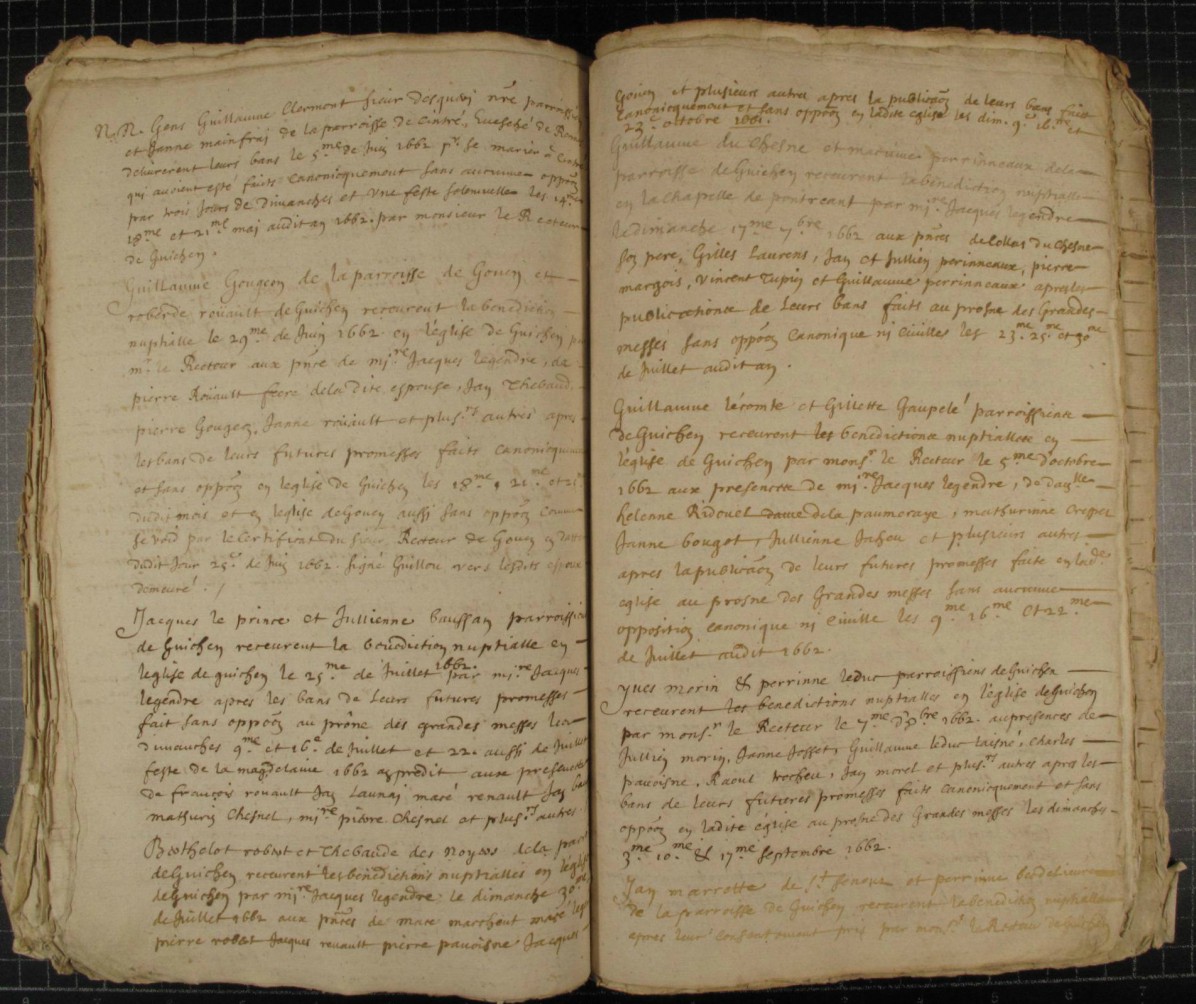 N. N. Gens Guillaume Clermont sieur desquoj nre parroissi
et Janne mainfraj de la parroisse de Contré, Euesché de
deliurerent leurs bans le 5.me de Juin 1662 pr se marier a
qui auoient esté faits canonicquement sans aucune oppõon
par trois jours de Dimanches et Vne feste solemnelle les 14.me
18.me et 21.me maj audit an 1662. par monsieur le Recteur
de Guichen.
Guillaume Gougeon de la parroisse de Gouen et
roberde roüault de Guichen receurent la benediction
nuptialle le 29.me de Juin 1662 en leglise de Guichen
mr le Recteur aux pnce de mi.re Jacques legendre, de
pierre Roüault frere dela dite espouse, Jan Thebaud
pierre Gougeon, Janne roüault et plus.rs autres apres
les bans de leurs futures promesses faits canonicquem
et sans oppõon en leglise de Guichen les 18.me, 21.me et
dudit mois et en leglise de Gouen aussi sans oppõon comme
se void par le certificat du sieur Recteur de Gouen en datte
dudit Jour 25.e de Juin 1662. signé Guillou vers lesdits espoux
demeuré. /
Jacques le prince et Jullienne baussan parroissie
de Guichen receurent la benediction nuptialle en
leglise de guichen le 25.me de Juillet 1662. par mi.re Jacques
legendre apres les bans de Leurs futures promesses
fait sans oppõon au prône des grandes messes les
dimanches 9.me et 16.e de Juillet et 22. aussi de Juillet
feste de la magdelaine 1662 an predit aux presences
de françois rouault Jan Launaj macé renault Jan
mathurin Chesnel, mi.re pierre Chesnel et plus.rs autres
Berthelot robert et Thebaude des Noyers de la par
de Guichen receurent les benedictions nuptialles en leglise
de Guichen par mi.re Jacques legendre le dimanche 30.e
de Juillet 1662 aux pnces de mace marchent mace
pierre robert Jacques renault pierre pauoisne Jacques
Gouen et plusieurs autres apres la publicãon de leurs bans faict
canonicquement et sans oppõon en ladite eglise les dim. 9.e 16.me et
23.e octobre 1661.
Guillaume du Chesne et mathurine perrinneaux dela
parroisse de Guichen receurent la benediction nuptialle
en la chapelle de pontreant par mi.re Jacques legendre
le dimanche 17.me 7.bre 1662 aux pnces de Collas du Chesne
son pere, Gilles Laurens, Jan et Jullien perinneaux, pierre
margois, Vincent Tupin et Guillaume perrinneaux apres les
publications de leurs bans faits au prosne des Grandes
messes sans oppõon Canonique ni Ciuille les 23.me 25.me et 30.me
de Juillet audit an.
Guillaume lecomte et Gillette Gaupelé parroissiens
de Guichen receurent les benedictions nuptialles en
leglise de Guichen par mons.r le Recteur le 5.me d'octobre
1662 aux presences de mi.re Jacques legendre, de dam.lle
helenne Ridouel dame dela paumeraye, mathurinne Crespel
Janne bougot, Jullienne Jaheu et plusieurs autres
apres la publicãon de leurs futures promesses faite en lad.e
eglise au prosne des Grandes messes sans aucune
opposition canonique ni ciuille les 9.me 16.me et 22.me
de Juillet audit 1662.
Yues morin & perrinne leduc parroissiens de Guichen
receurent les benedictions nuptialles en leglise de Guichen
par mons.r le Recteur le 7.me d'8.bre 1662. aux presences de
Jullien morin, Janne Josset, Guillaume leduc laisné, Charles
pauoisne, Raoul trocheu, Jan morel et plus.rs autres apres les
bans de leurs futures promesses faits canonicquement et sans
oppõon en ladite eglise au prosne des Grandes messes les dimanches
3.me 10.me & 17.me Septembre 1662.
Jan marrotte de S.t Senoux et perrinne
de la parroisse de Guichen receurent la benediction nuptialle
apres leur consentement pris par mons.r le Recteur de Guichen